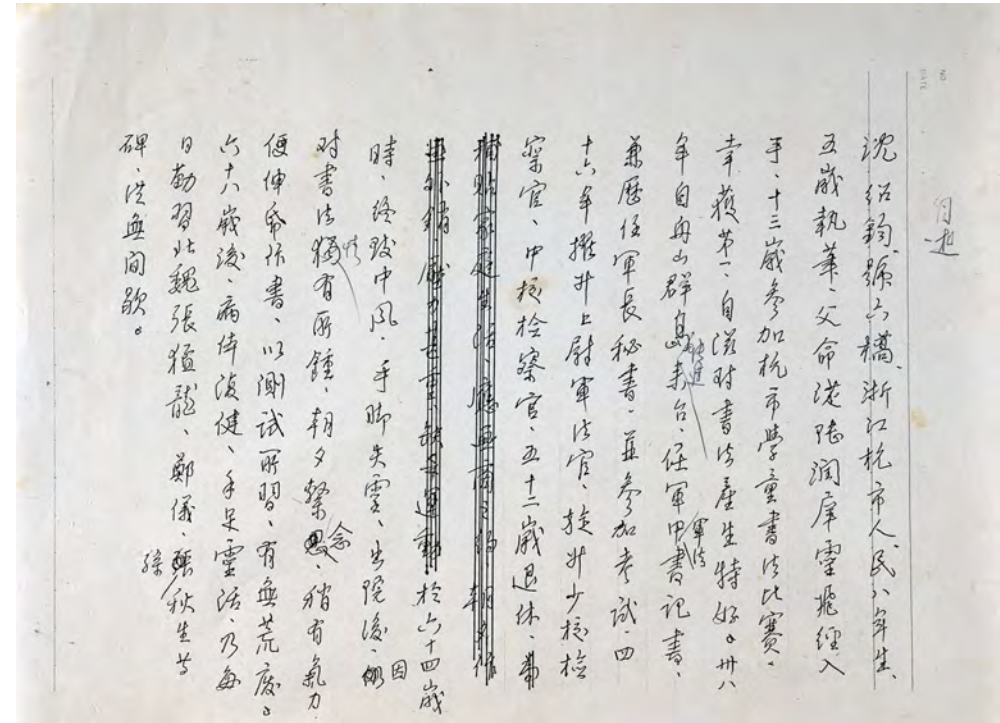 自述
沈紹鈞、號六橋、浙江杭市人、民八年生、
五歲執筆、父命從陸潤庠靈飛經入
手、十三歲參加杭市學童書法比賽、
幸獲第一、自滋对書法產生特好。卅八
年自舟山群島來台、任軍中軍法書記書、
兼歷任軍長秘書、並參加考試、四
十六年擢升上尉軍法官、旋升少校檢
察官、中校檢察官、五十二歲退休、
補貼家庭生活、應
於六十四歲
時、終致中風、手脚失靈、出院後、因
对書法獨有所鍾、朝夕繫念、稍有氣力
便伸帋作書、以測試所習、有無荒廢。
六十八歲後、病体復健、手足靈活、乃每
日勤習北魏張猛龍、鄭儀、孫秋生等
碑、從無間歇。